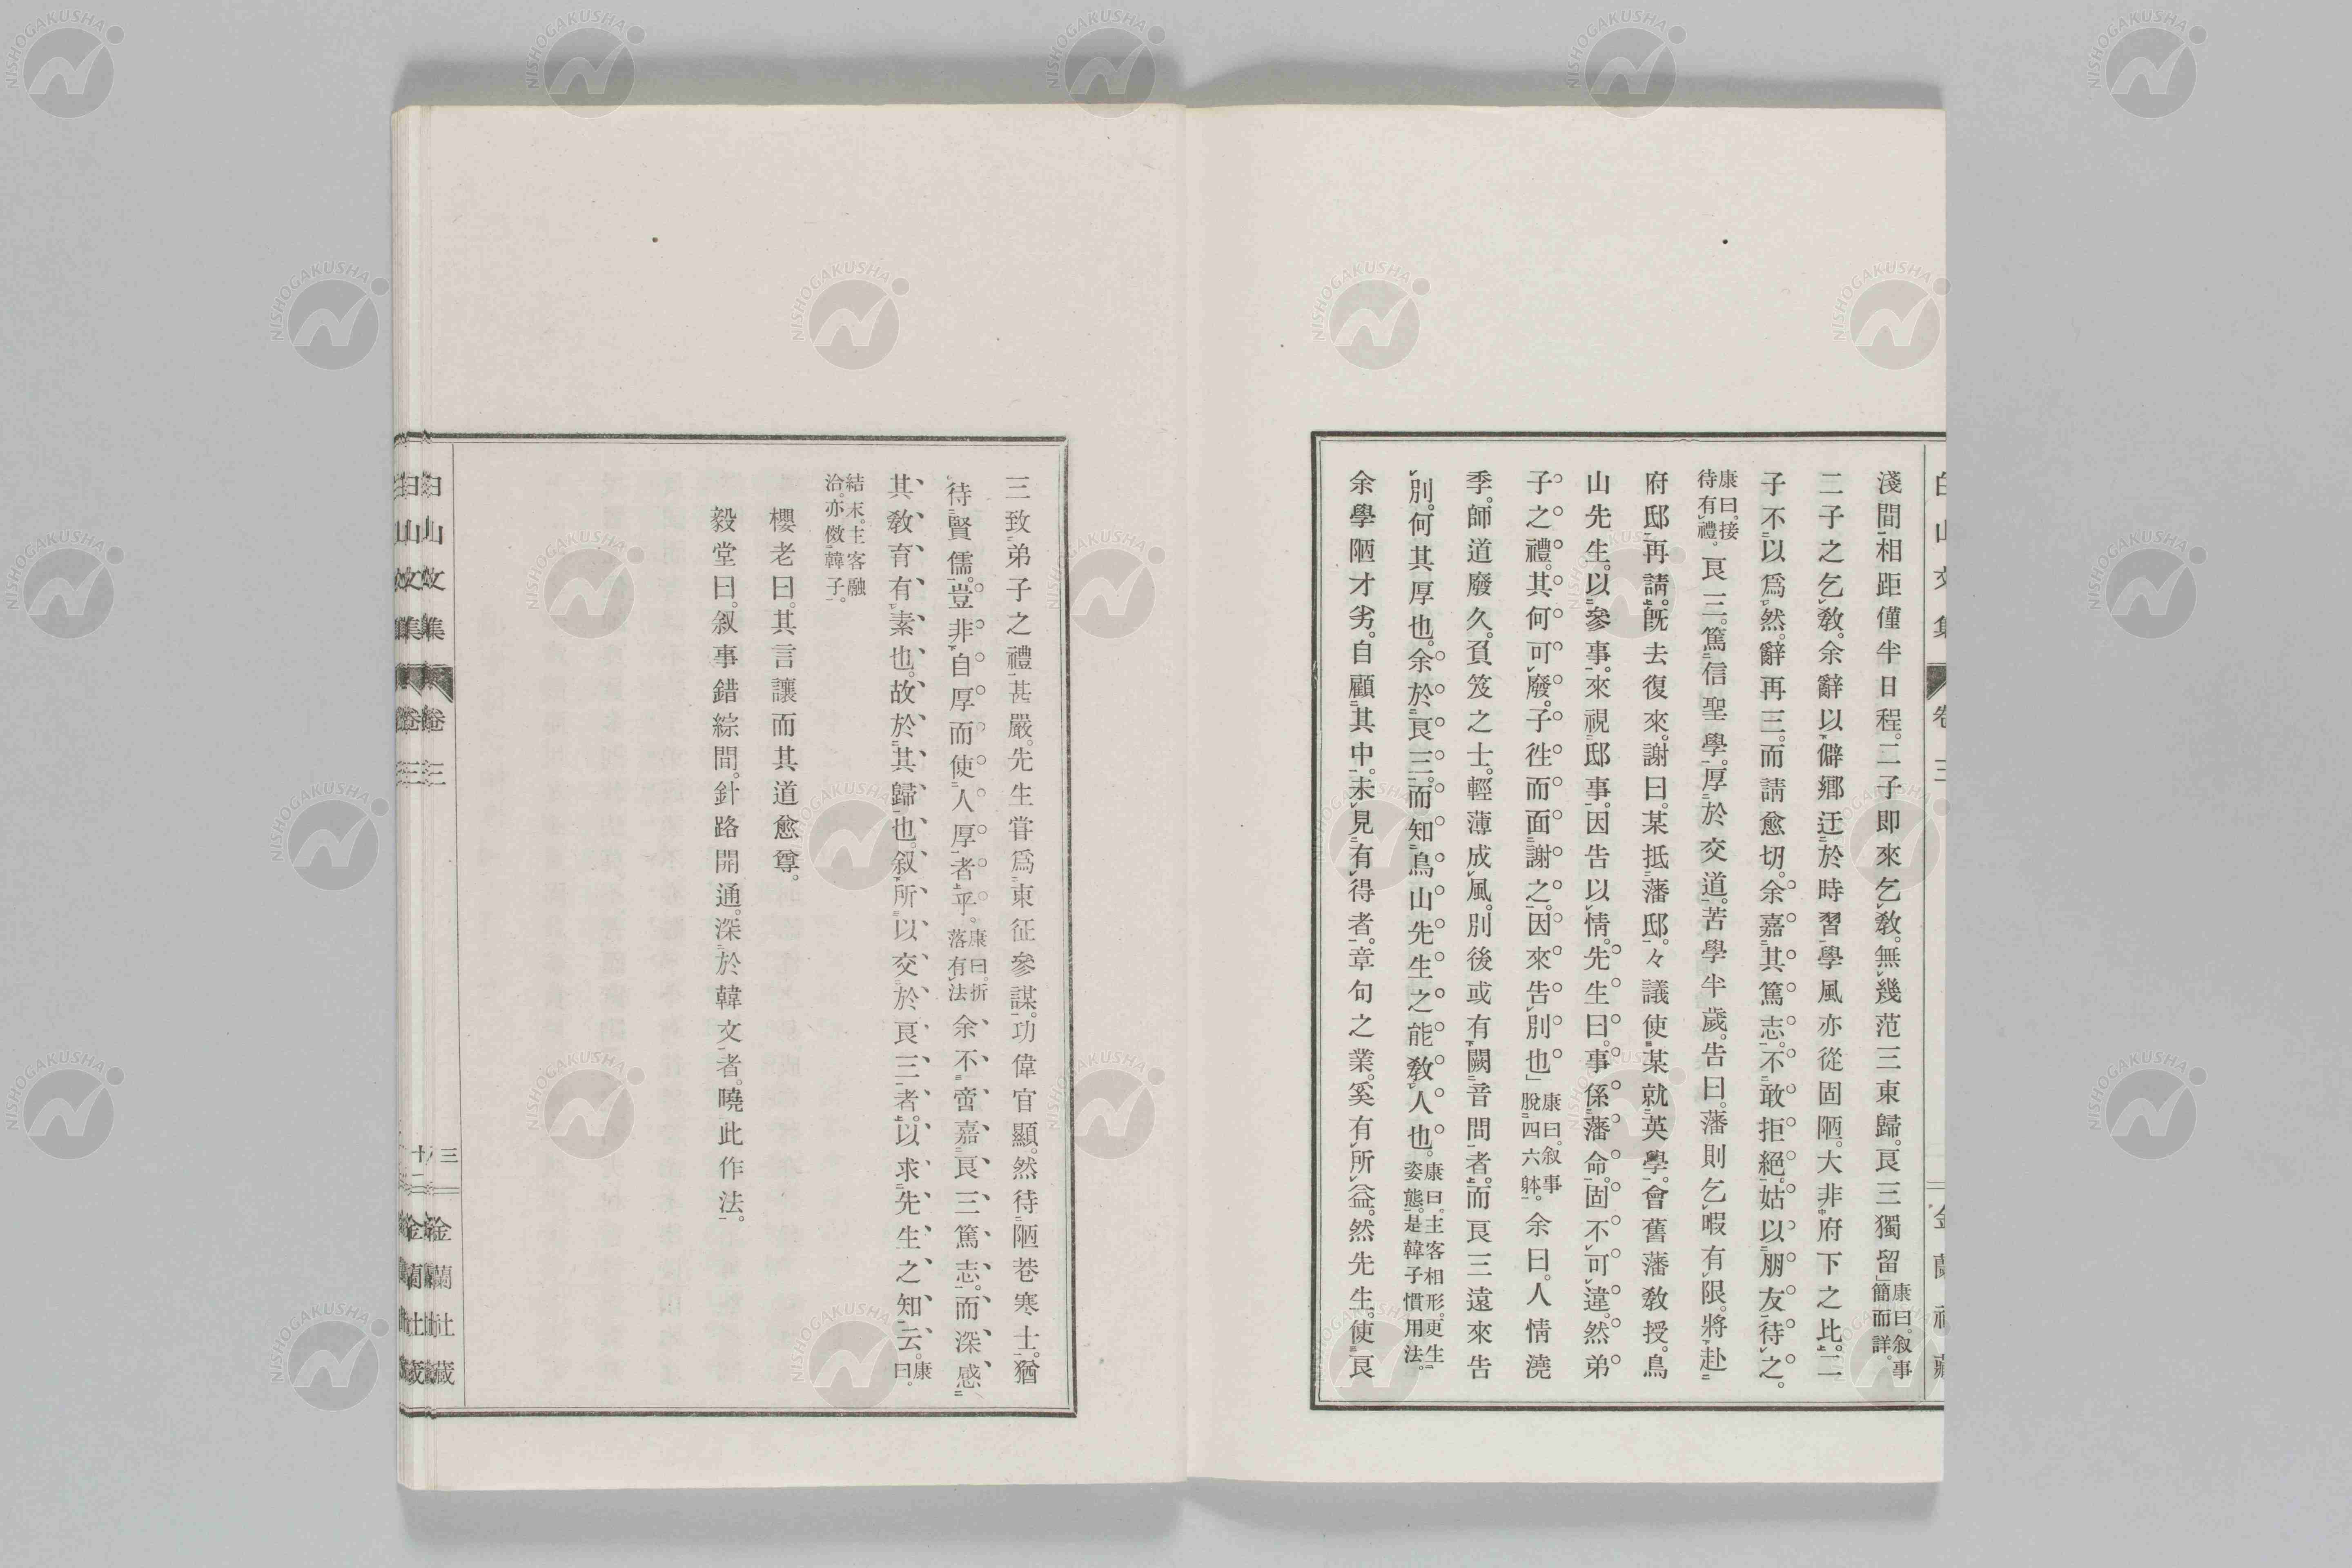 淺間、相距僅半日程。二子即來乞敎。無幾范三東歸。艮三獨留」康曰。叙事簡而詳。
二子之乞敎。余辭以僻鄕迂於時習、學風亦從固陋。大非府下之比。二
子不以爲然。辭再三。而請愈切。余嘉其篤志。不敢拒絕。姑以朋友待之。
康曰。接待有禮。艮三篤信聖學。厚於交道。苦學半歲。告曰。藩則乞暇有限。將赴
府邸、再請。既去復來。謝曰。某抵藩邸。々議使某就英學。會舊藩敎授。鳥
山先生。以參事。來視邸事。因告以情。先生曰。事係藩命。固不可違。然弟
子之禮。其何可廢。子徃而面謝之。因來告別也」康曰。叙事脫四六躰。余曰。人情澆
季。師道廢久。負笈之士。輕薄成風。別後或有闕音問者。而艮三遠來告
別。何其厚也。余於艮三。而知鳥山先生之能敎人也。康曰。主客相形。更生姿態。是韓子慣用法。
余學陋才劣。自顧其中。未見有得者。章句之業。奚有所益。然先生。使艮
白山文集 卷三 金蘭社藏
三致弟子之禮、甚嚴。先生甞爲東征參謀。功偉官顯。然待陋巷寒士。猶
待賢儒。豈非自厚而使人厚者乎。康曰。折落有法 余不啻嘉艮三篤志。而深感
其敎育有素也。故於其歸也。叙所以交於艮三者。以求先生之知云。康曰。
結末。主客融洽。亦倣韓子。
櫻老曰。其言讓而其道愈尊。
毅堂曰。叙事錯綜間。針路開通。深於韓文者。曉此作法。
白山文集 卷三 金蘭社藏